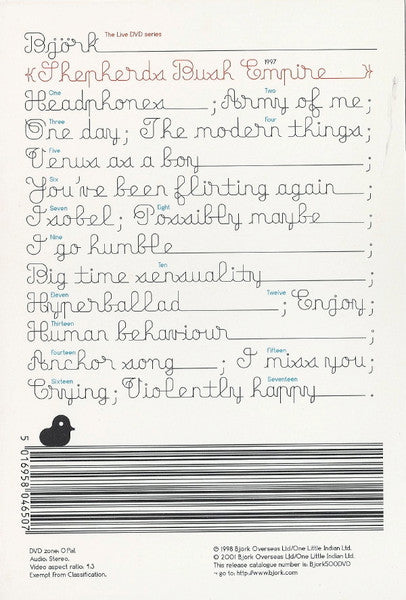 Björk The Live DVD series
{Shepherds Bush Empire 1997}
One Two
Headphones ; Army of me;
Three Four
One day; The modern things;
Five
Venus as a boy ;
Six
You've been flirting again ;
Seven Eight
Isobel; Possibly maybe ;
Nine
I go humble ;
Ten
Big time sensuality ;
Eleven Twelve
Hyperballad ; Enjoy;
Thirteen
Human behaviour ;
Fourteen Fifteen
Anchor song ; I miss you;
Sixteen Seventeen
Crying; Violently happy .
5 016958 046507
DVD zone: 0 Pal.
Audio: Stereo.
Video aspect ratio: 4:3
Exempt from Classification.
© 1998 Björk Overseas Ltd/One Little Indian Ltd.
© 2001 Björk Overseas Ltd/One Little Indian Ltd.
This release catalogue number is: Bjork500DVD
¬ go to: http://www.bjork.com